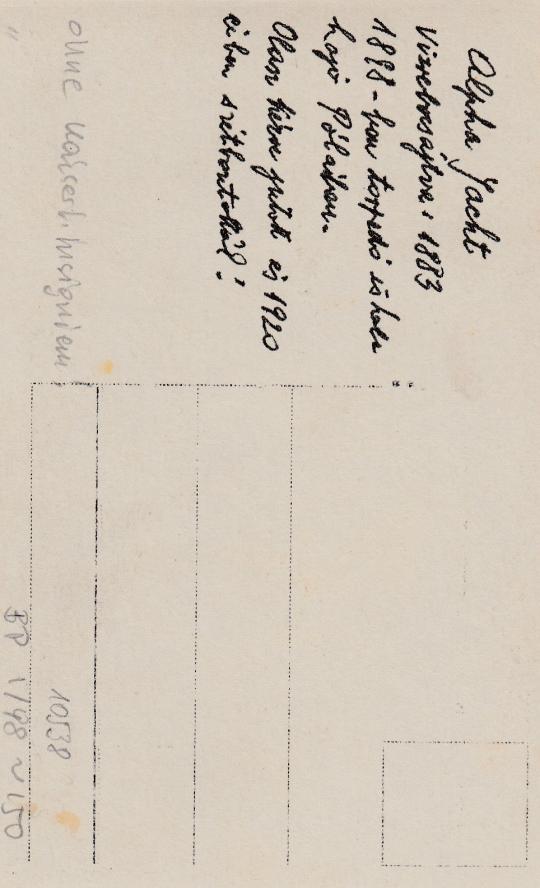 Alpha Yacht
Vízrebocsájtva: 1883
1898-ban torpedó iskola
hajó Pólában.
Olasz kézre jutott és 1920
ban szétbontották!
ohne Kaiserl. Insignien,
"
10538
BP 1/98 ~ 150